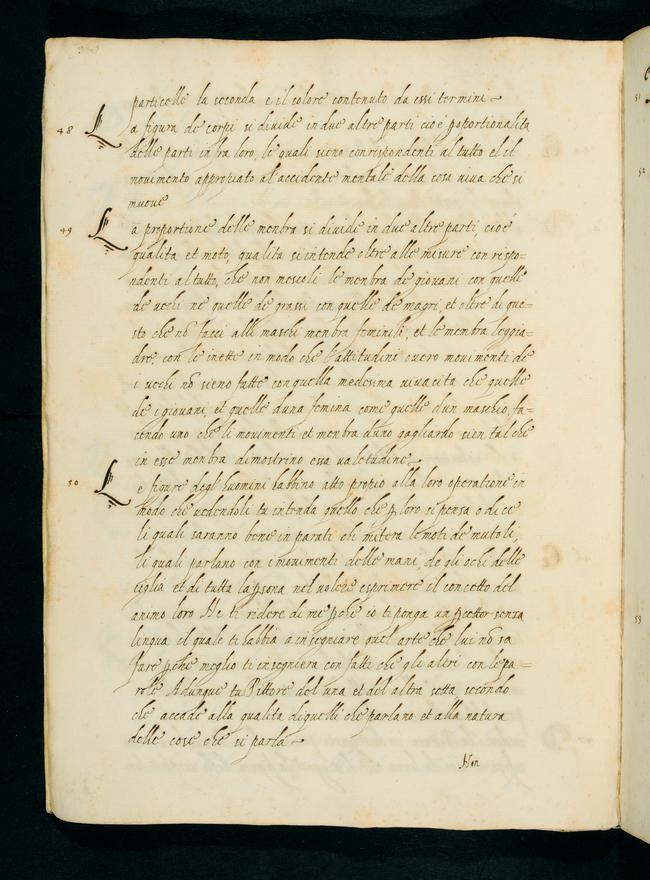 particelle la seconda e il colore contenuto da essi termini
48 La figura de corpi si divide in due altre parti cioè poportionalita
delle parti infra loro, le quali sieno conrispondenti al tutto el il
movimento appropiato al accidente mentale della cosa viva che si
muove
49 La proportione delle menbra si divide in due altre parti, cioè
qualita et moto, qualita si intende oltre alle misure conrispo=
ndenti al tutto, che non mescoli le menbra de giovani con quelle
de vechi ne quelle de grassi con quelle de magri, et oltre di que=
sto che nō facci alli maschi menbra feminili, et le menbra leggia=
dre, con le inette in modo che l'attitudini overo movimenti de
i vechi nō sieno fatte con quella medesima vivacita che quelle
de i giovani, et quelle duna femina come quelle dun maschio, fa=
cendo uno che li movimenti et menbra d'uno gagliardo sien tal che
in esse menbra dimostrino essa valetudine
50 Le figure degl huomini habbino atto propio alla loro operatione in
modo che vedendoli tu intenda quello che ꝑ loro si pensa o dice
li quali saranno bene in parati chi mitera le moti de mutoli,
li quali parlano con i movimenti delle mani, de gli ochi delle
ciglia et di tutta la ꝑsona nel volere esprimere il concetto del
animo loro Ne ti ridere di me ꝑche io ti ponga un ꝑcettor senza
lingua il quale ti habbia a insegniare quel arte che lui nō sa
fare ꝑche meglio ti insegniera con fatti che gli altri con le pa=
role Adunque tu Pittore del una et del altra setta secondo
che accade alla qualita di quelli che parlano et alla natura
delle cose che si parla
Non
51
52
53